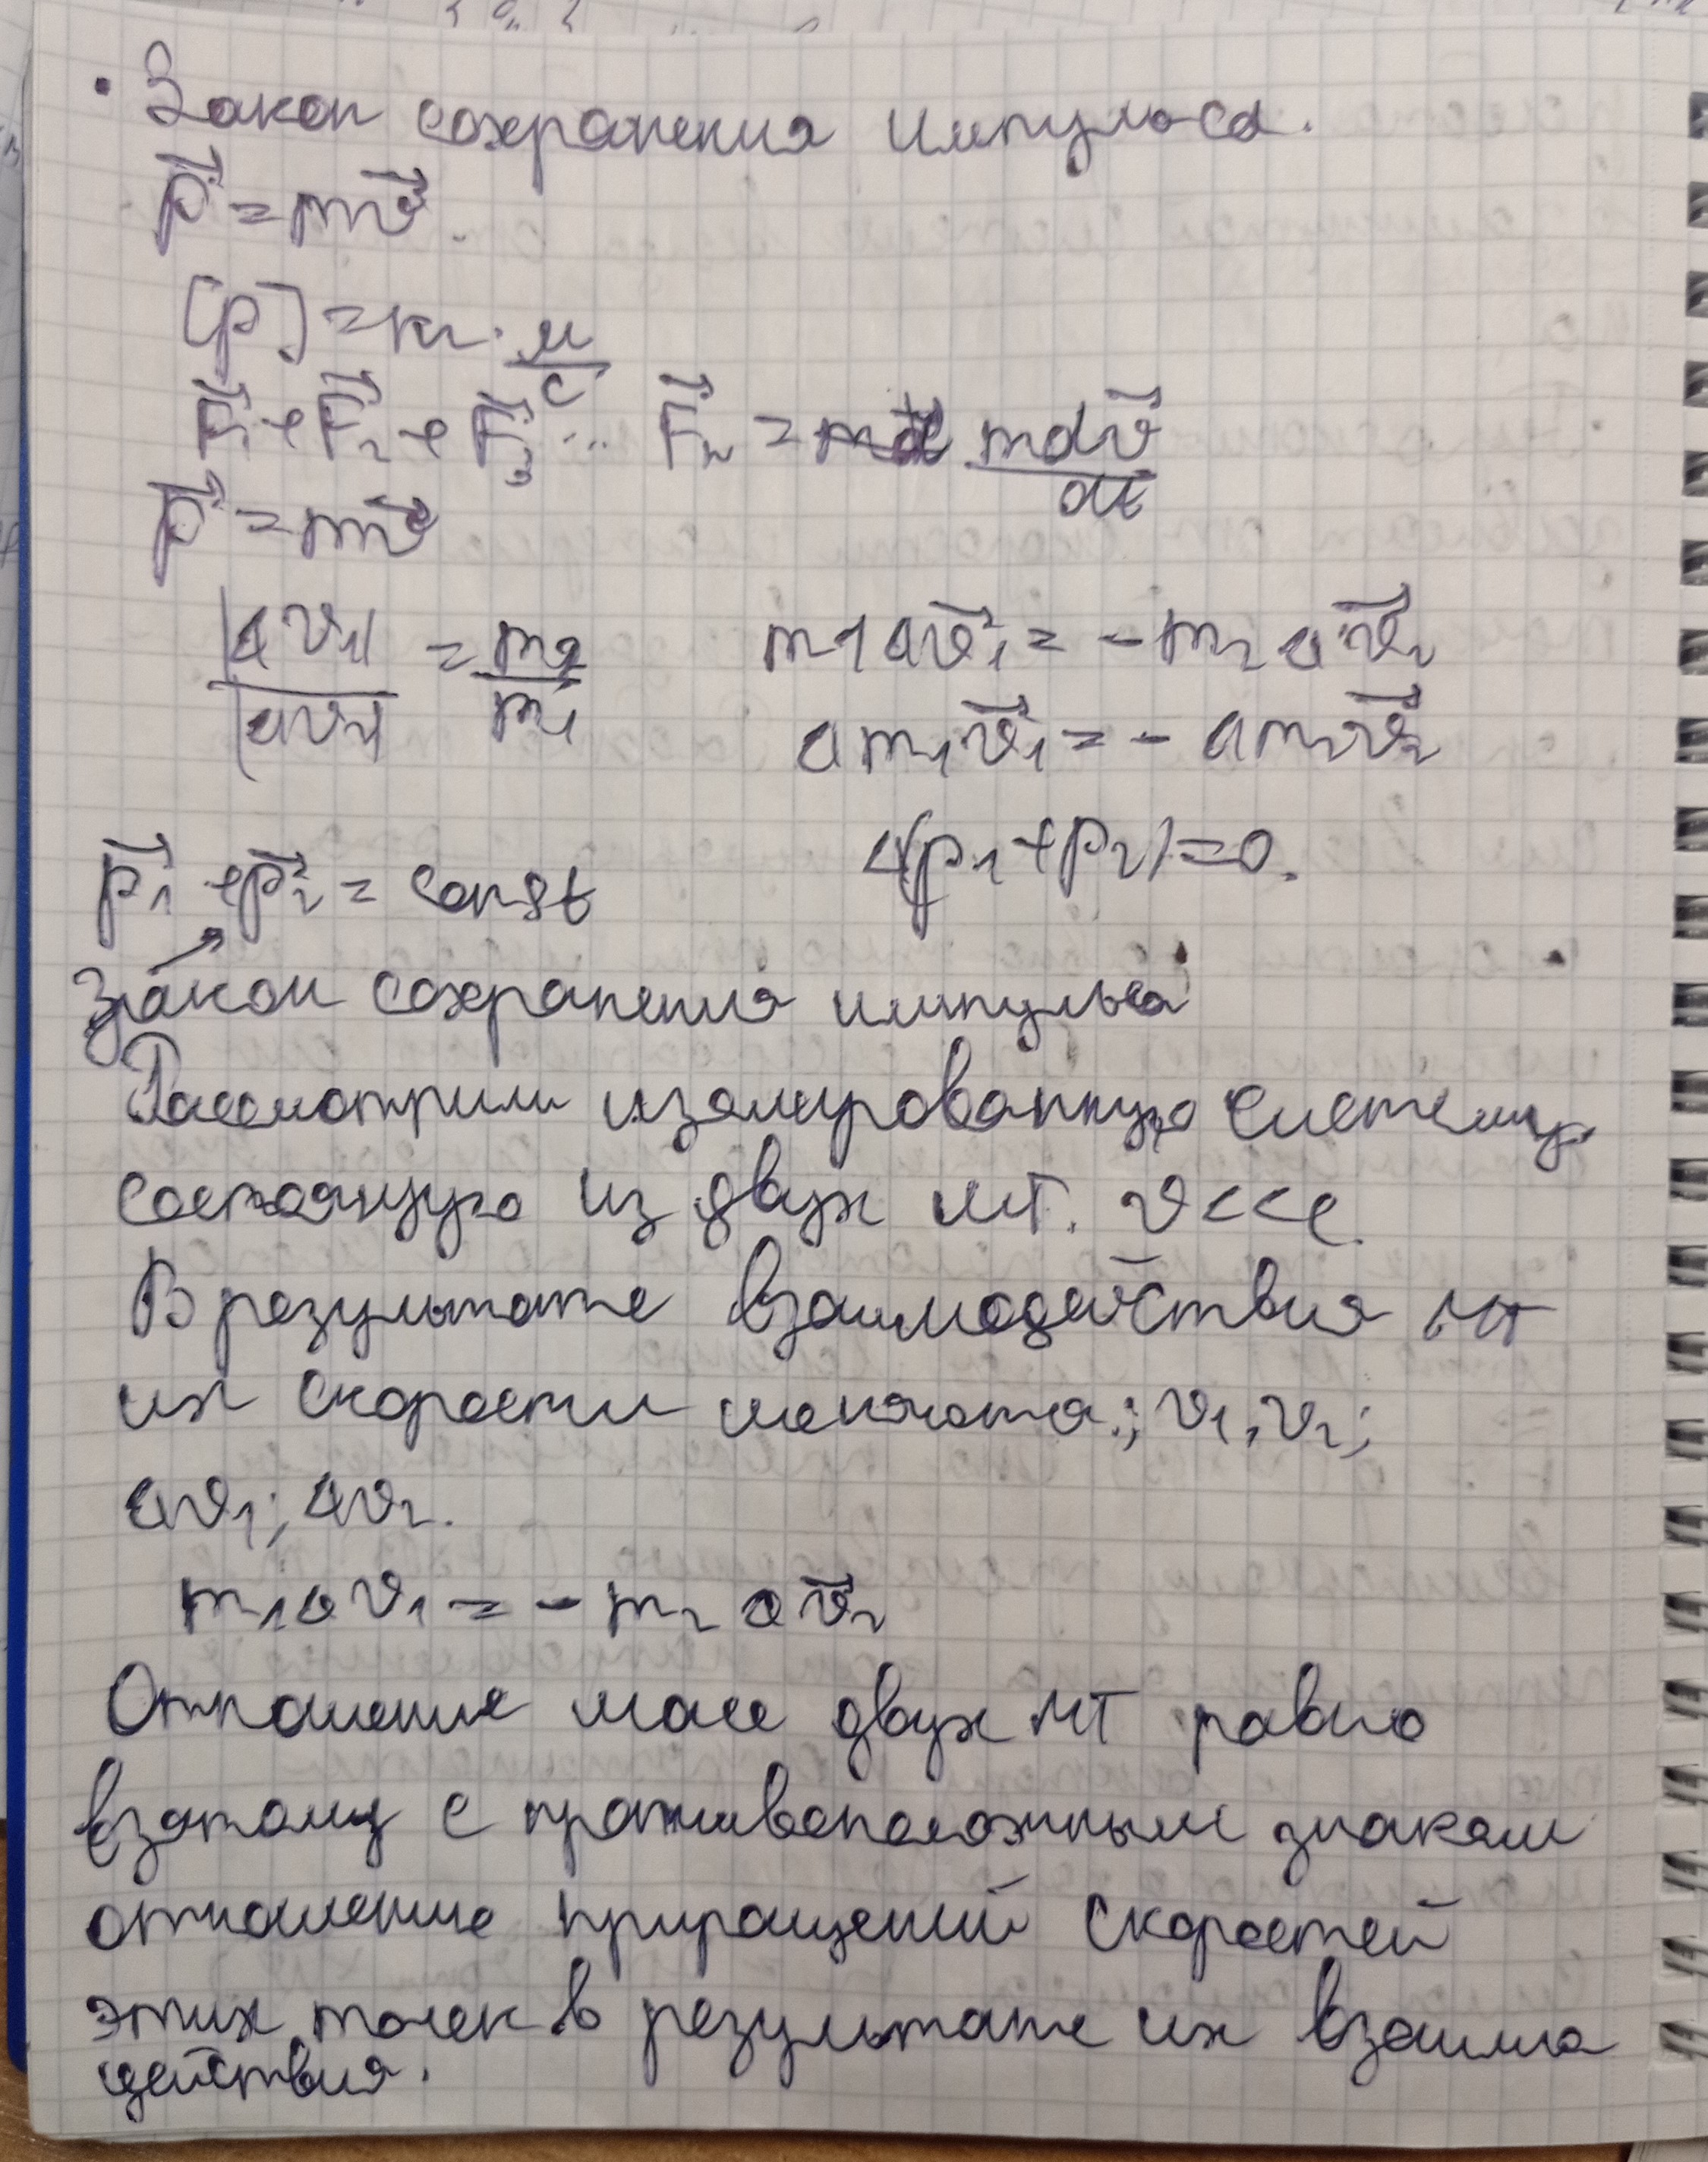 · Закон сохранения импульса.
p⃗ = mv⃗.
[p] = кг · м/с
F⃗₁ + F⃗₂ + F⃗₃ ... F⃗ₙ = mdv⃗/dt
p⃗ = mv⃗
|Δv₁|/|Δv₂| = m₂/m₁ m1Δv⃗₁ = - m₂Δv⃗₂
Δm₁v⃗₁ = - Δm₂v⃗₂
p⃗₁ + p⃗₂ = const Δ(p₁ + p₂) = 0.
Закон сохранения импульса
Рассмотрим изолированную систему
состоящую из двух МТ. v<<c.
В результате взаимодействия МТ
их скорости меняются; v₁, v₂;
Δv₁; Δv₂.
m₁Δv₁ = - m₂Δv⃗₂
Отношение масс двух МТ равно
взятому с противоположным знаком
отношение приращений скоростей
этих точек в результате их взаимо
действия.